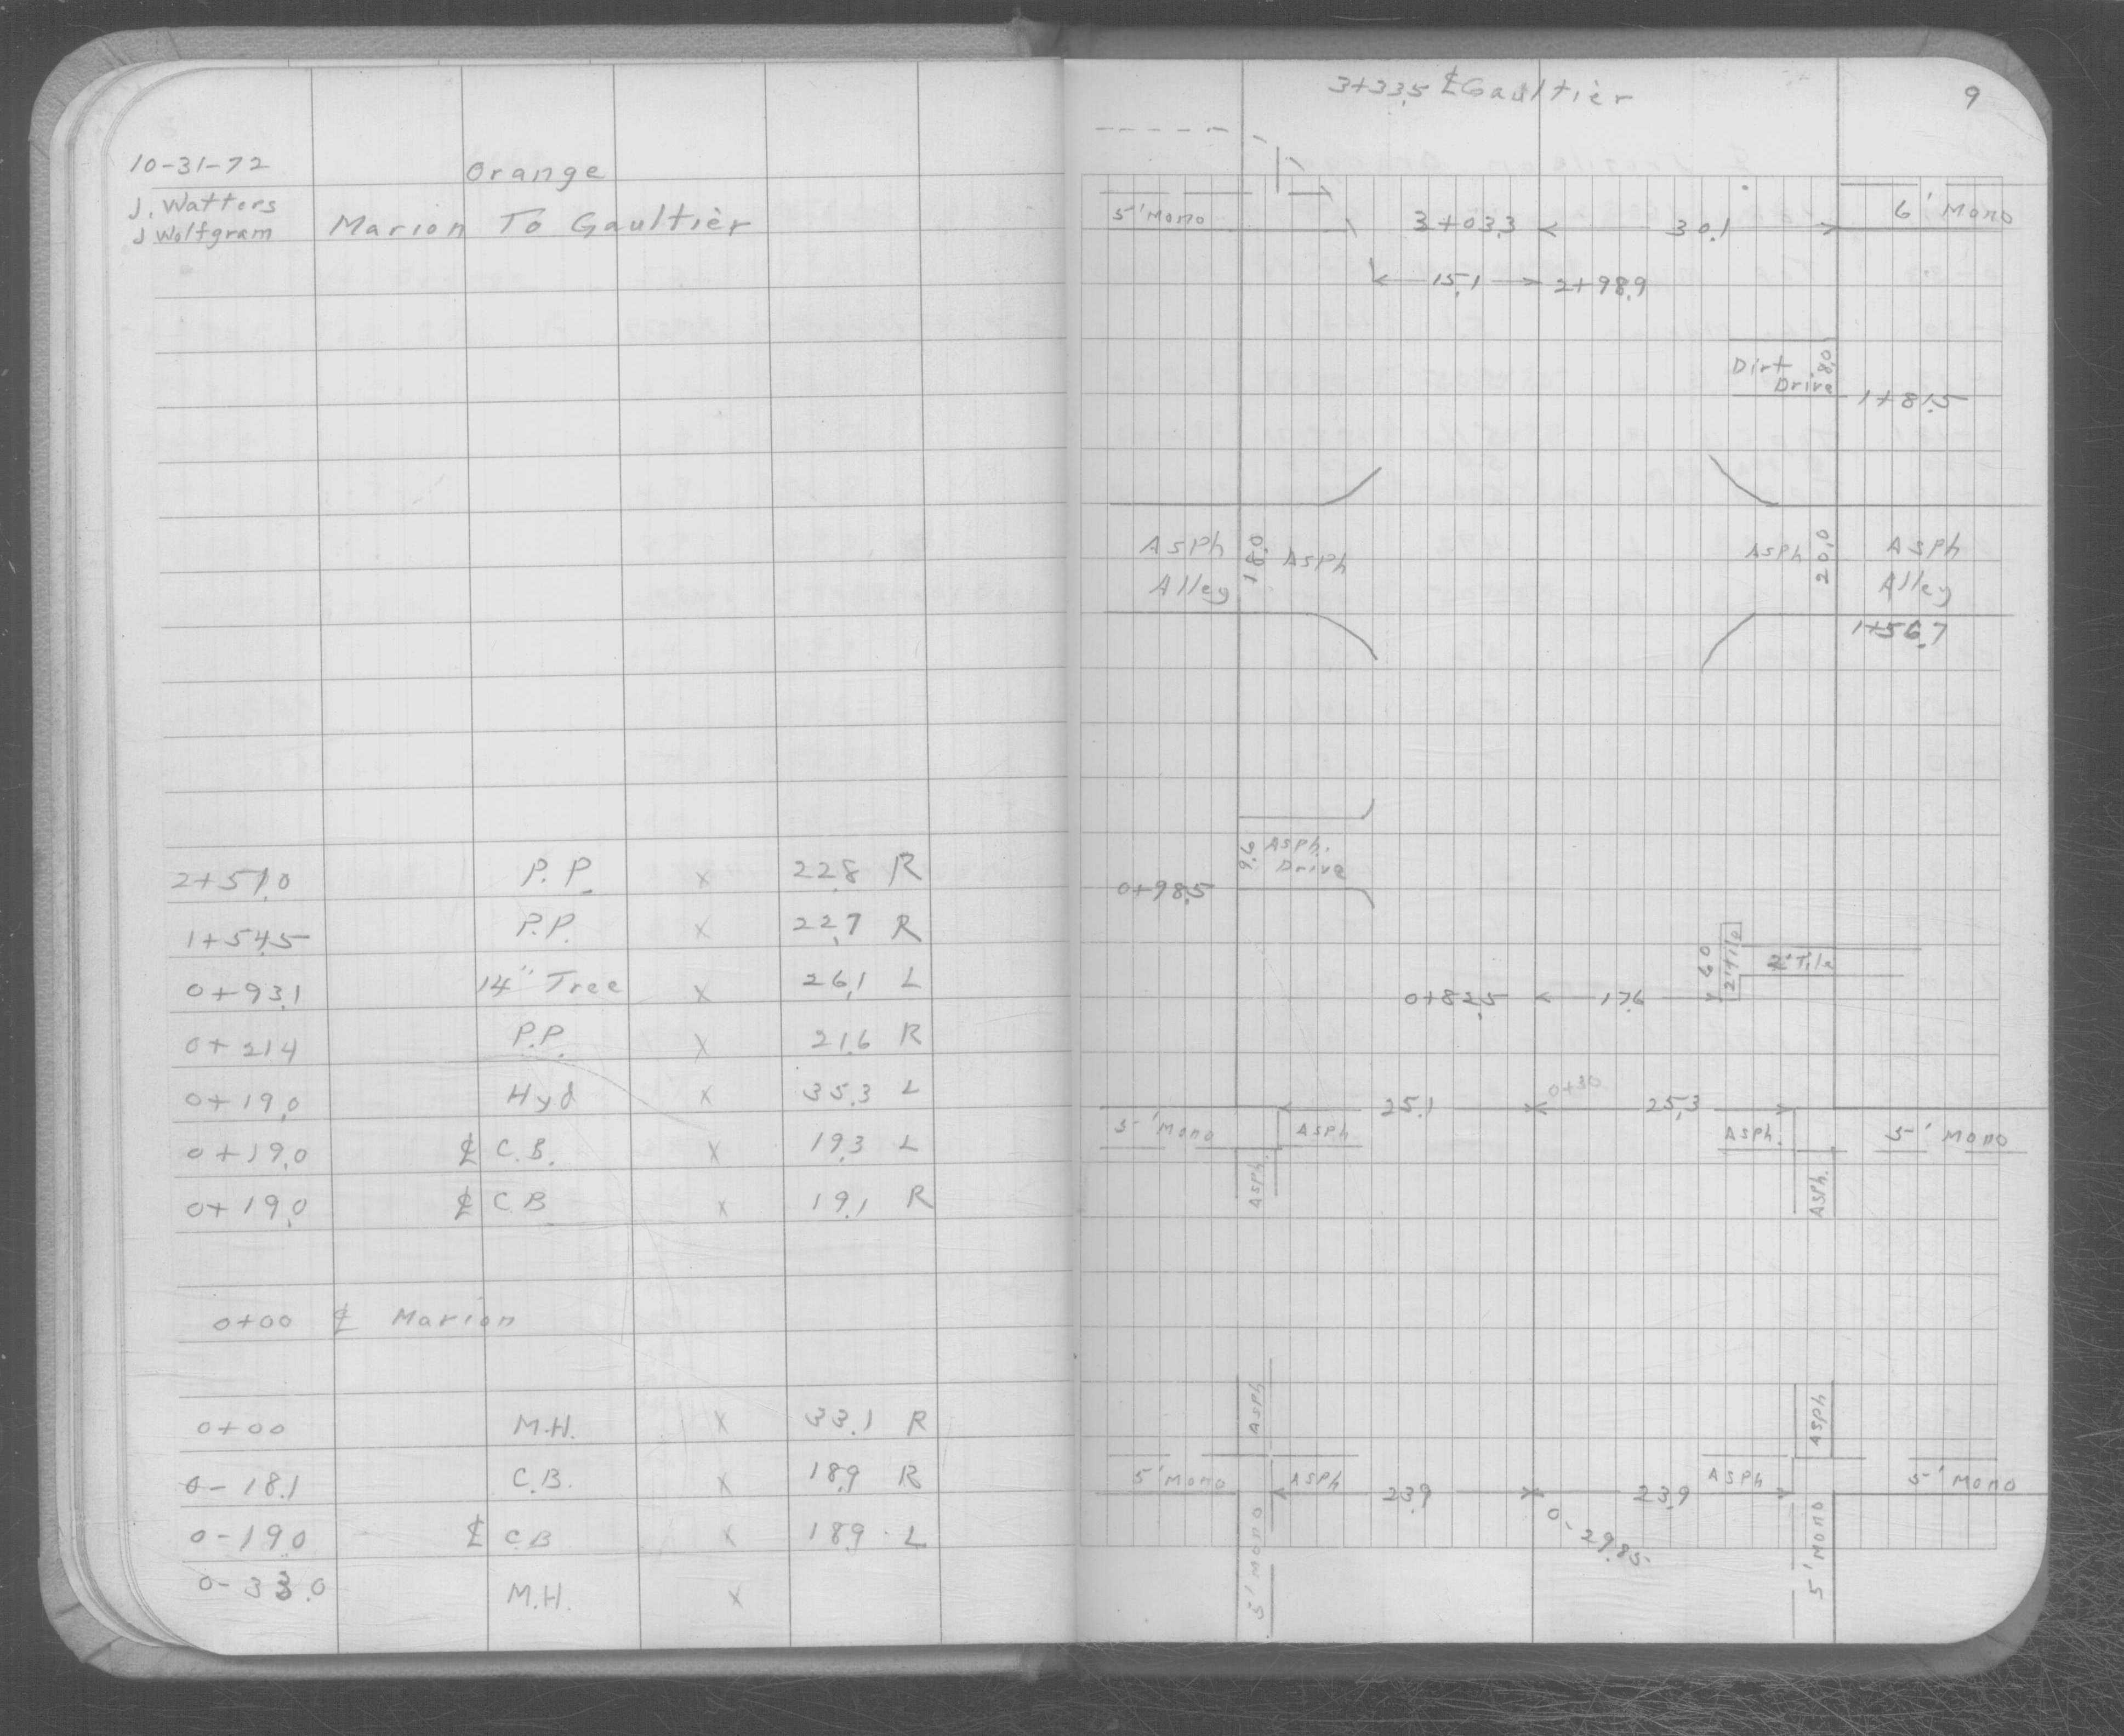 10-31-72
Orange
J. Watters
J Wolfgram
Marion To Gaultier
2+51.0 P.P. x 22.8 R
1+54.5 P.P. x 22.7 R
0+93.1 14" Tree x 26.1 L
0+21.4 P.P. x 21.6 R
0+19.0 Hyd x 35.3 L
0+19.0 ₵ C.B. x 19.3 L
0+19.0 ₵ C B x 19.1 R
0+00 ₵ Marion
0+00 M.H. x 33.1 R
0-18.1 C.B. x 18.9 R
0-19.0 ₵ C B x 18.9 L
0-33.0 M.H. x
3+33.5 ₵ Gaultier
9
5' Mono 3+03.3 30.1 6' Mono
15.1 2+98.9
Dirt Drive 8.0
1+81.5
Asph Alley 18.0 Asph
Asph 20.0 Asph Alley
1+56.7
9.6 Asph. Drive
0+98.5
6.0 2' Tile 2' Tile
0+82.5 17.6
25.1 0+30 25.3
5' Mono Asph Asph. 5' Mono
Asph. Asph.
Asph Asph
5' Mono Asph 23.9 23.9 Asph 5' Mono
0-29.85
5' Mono 5' Mono